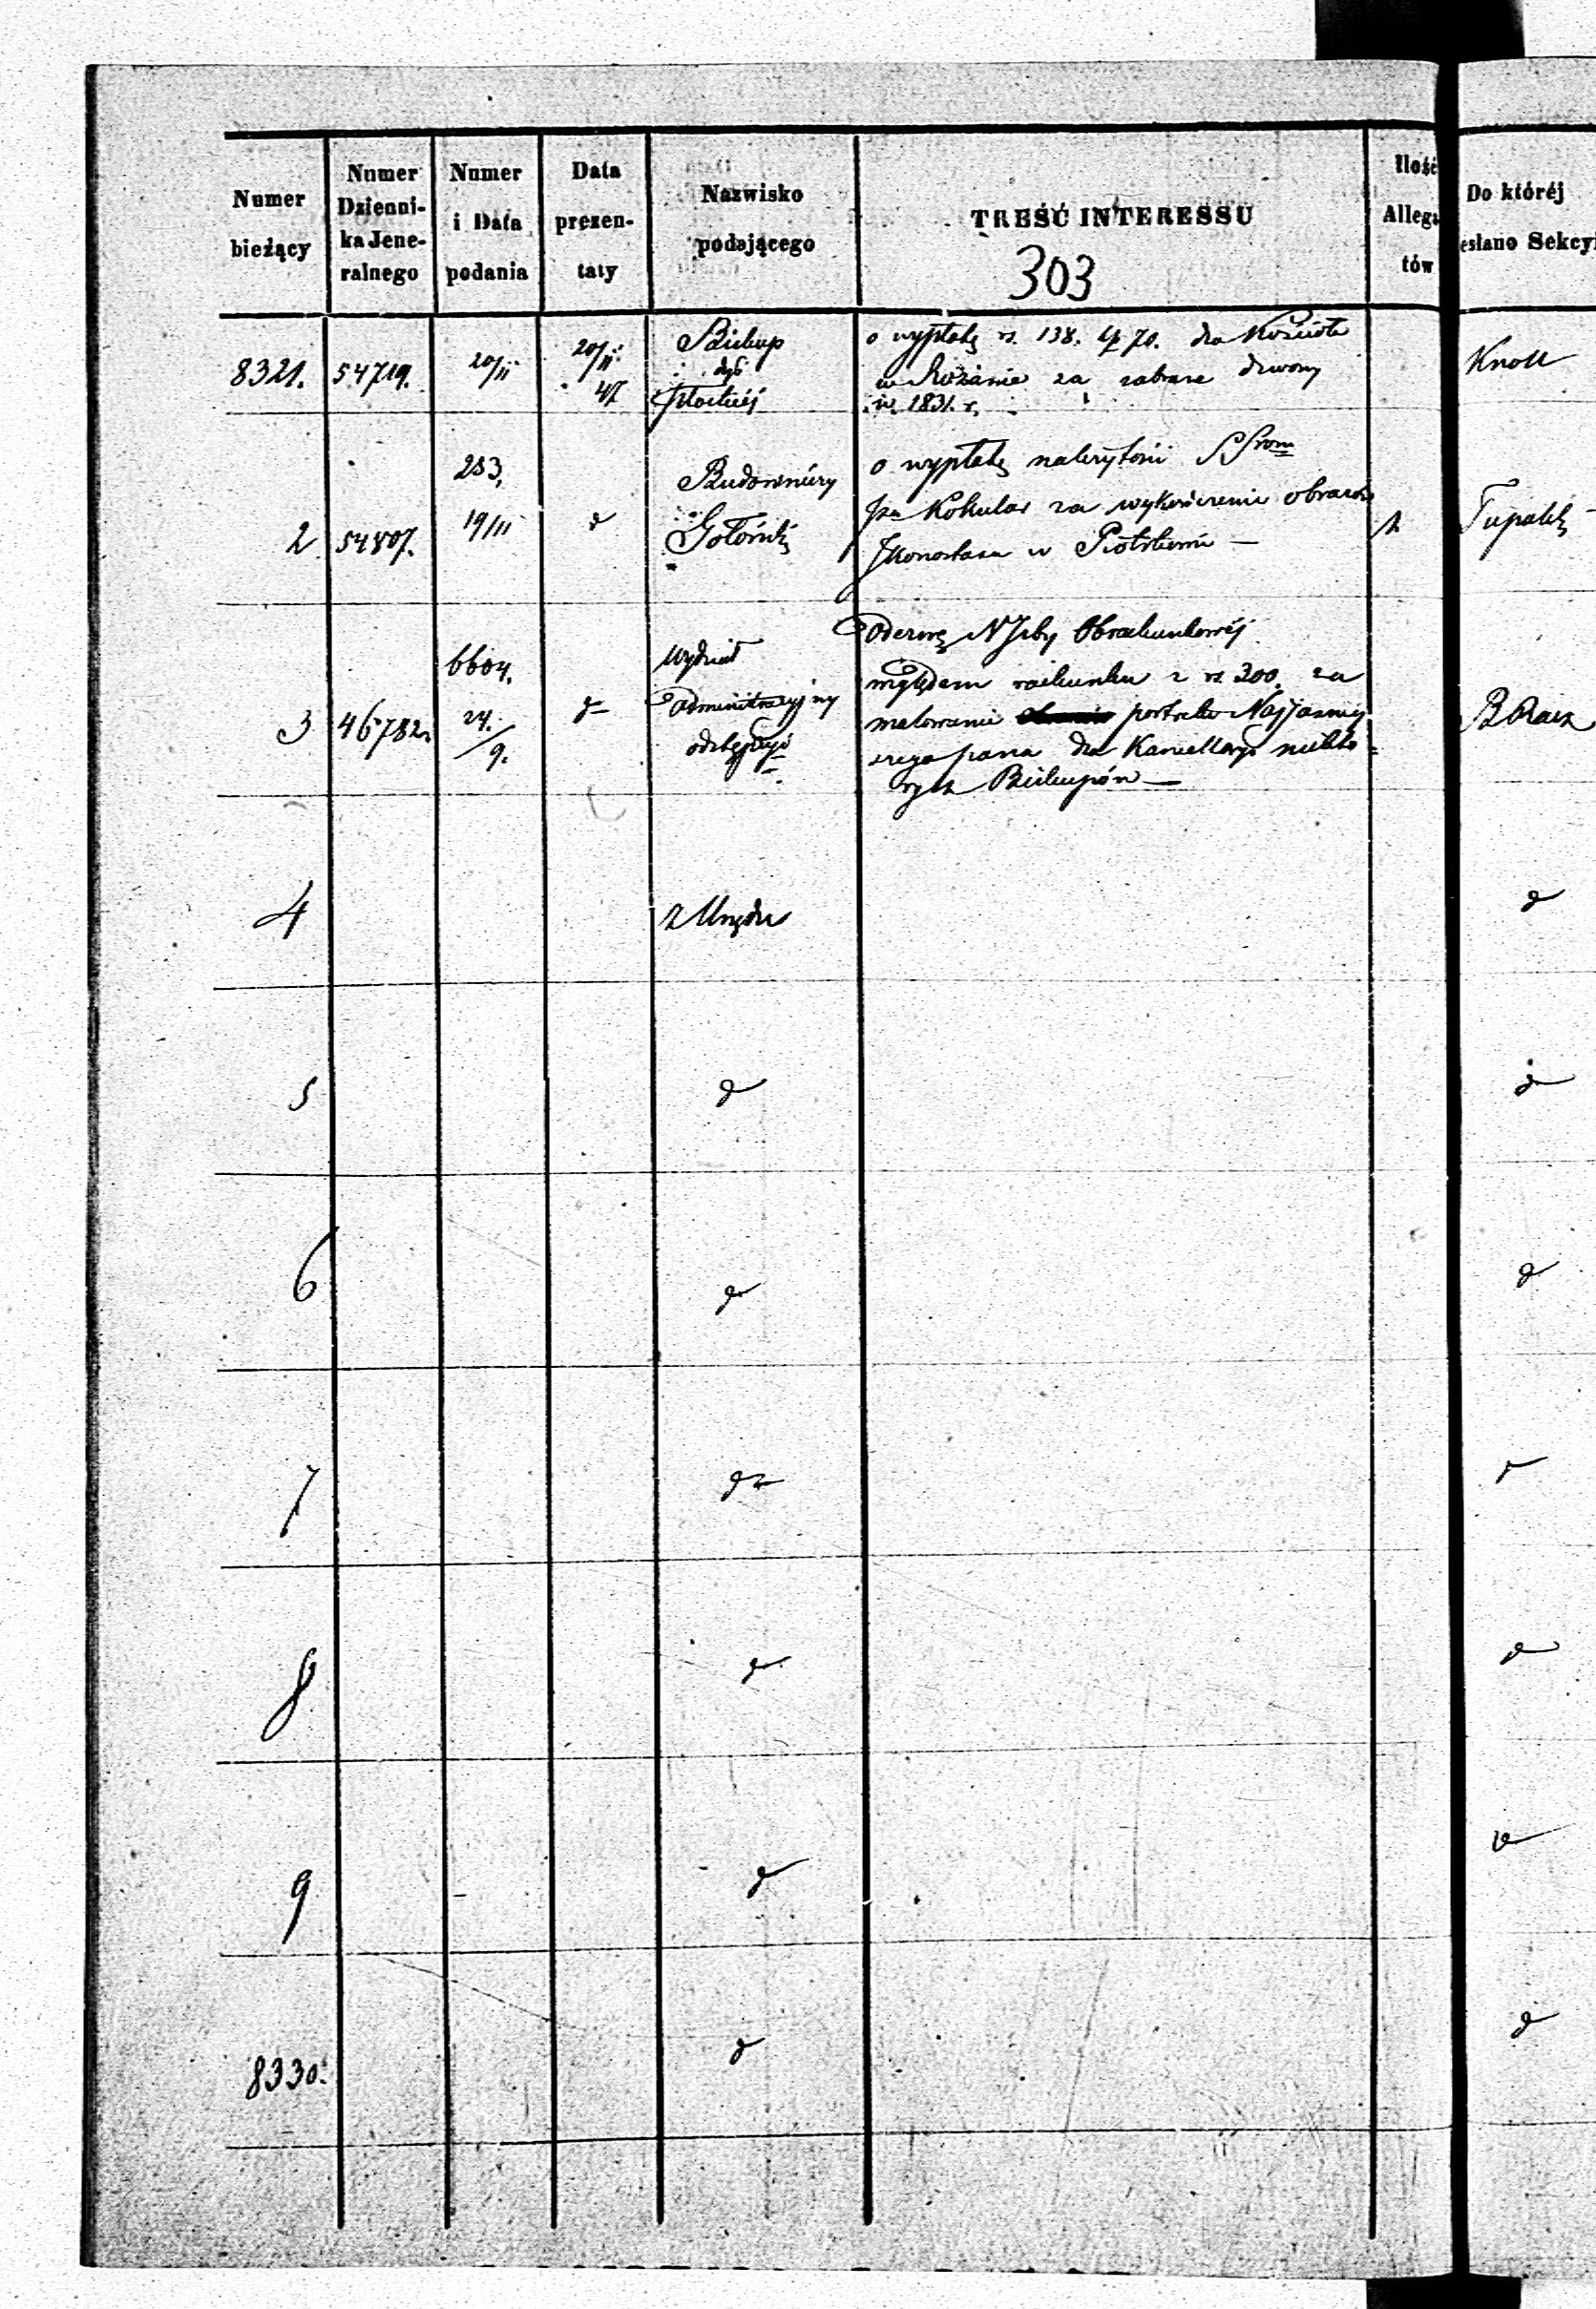 Numer bieżący
Numer Dzienni-ka Jene-ralnego
Numer i Data podania
Data prezen-taty
Nazwisko podającego
TREŚĆ INTERESSU
303
Ilość Allega tów
Do któréj esłano Sekcyi
8321. 54719. 20/11 20/11 47 Biskup dyć Płockiéj
o wypłatę rs. 138. k. 70. dla Kościoła
w Różanie za zabrane dzwony
w 1831. r.
Knoll
2 54807. 283, 19/11 d Budowniczy Gołoński
o wypłatę należytości
Kokular za wykończenie obrazów
Ikonostasu w Piotrkowie —
1.
Tupalski
3 46782. 6604. 24./9. d Wydział Administracyjny odstępuje
Odezwę N Izby Obrachunkowéj
względem rachunku z rs. 300. za
malowanie portretów Najjaśniej
szego pana dla Kancellaryi niektó=
rych Biskupów —
4 z Urzędu d
5 d d
6 d d
7 d d
8 d d
9 d d
8330. d d